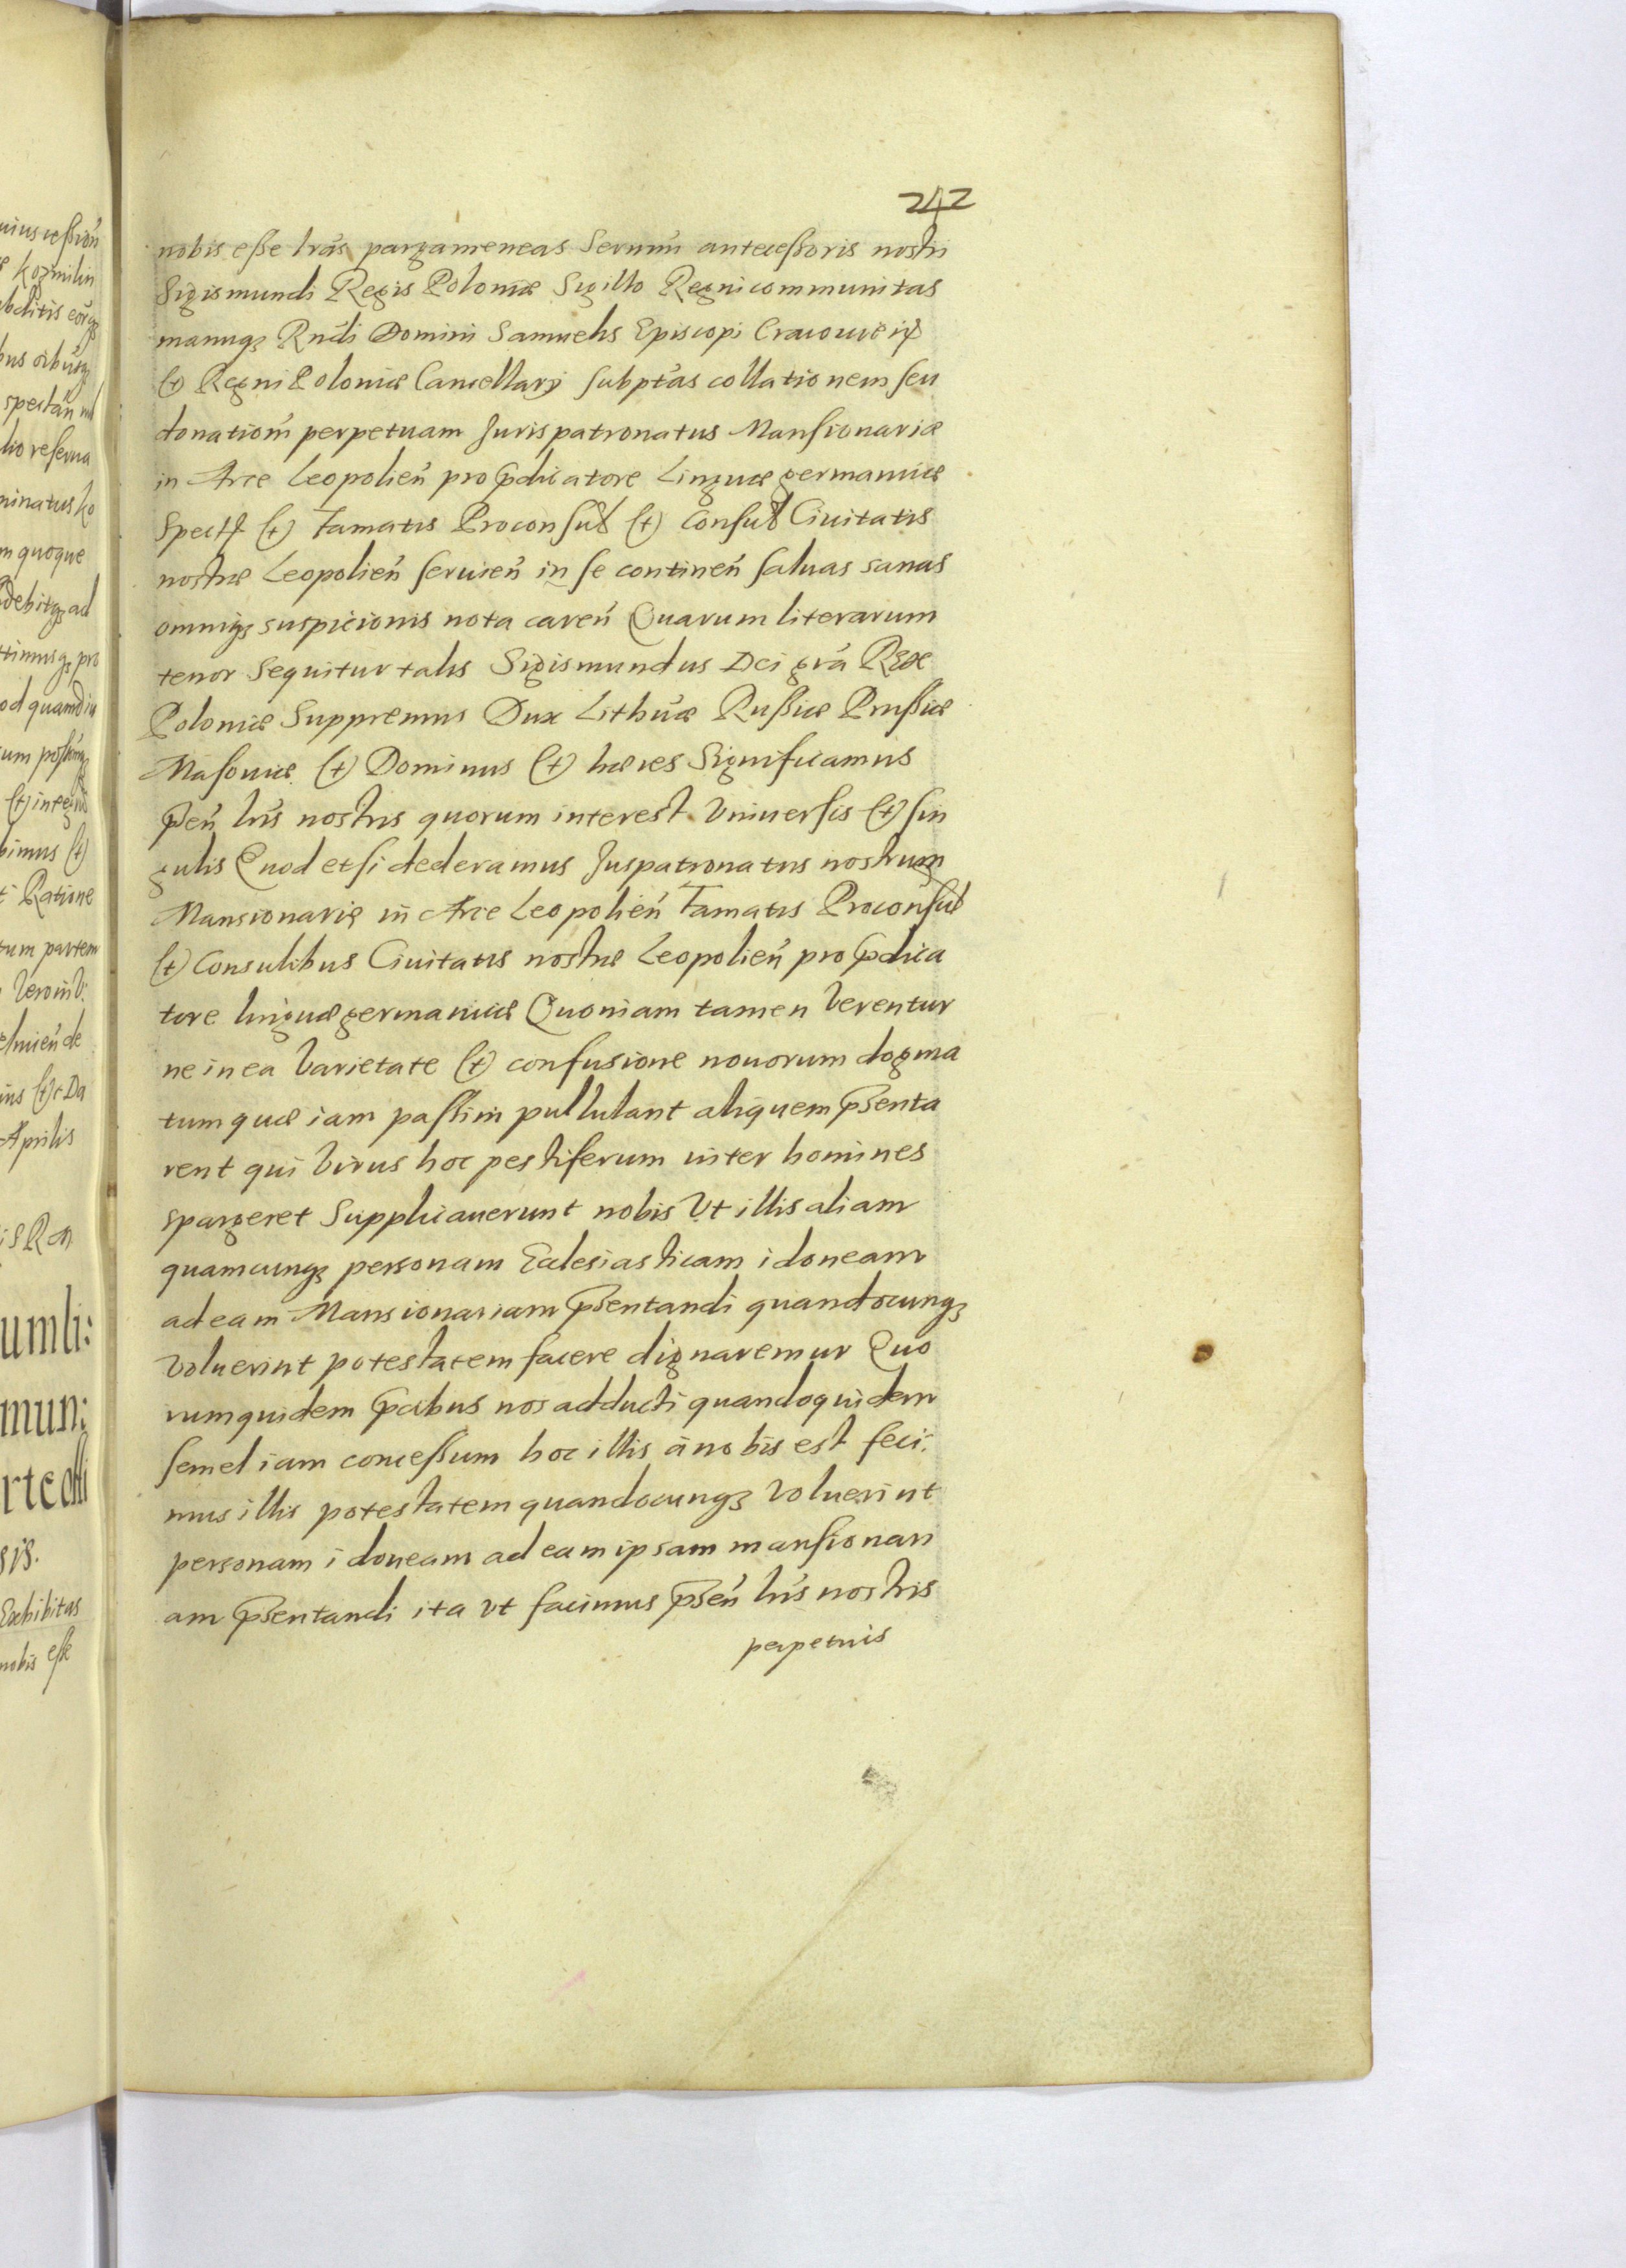 242
nobis esse lrãs pargameneas Sernmi antecessoris nostri
Sigismundi Regis Poloniæ Sigillo Regni communitas
manuqʒ Rndi Domini Samuelis Episcopi Cracouien
(et) Regni Poloniæ Cancellarÿ subptas collationem seu
donationem perpetuam Jurispatronatus Mansionariæ
in Arce Leopolien pro pdicatore Linguæ germanicæ
Spectt (et) Famatis Proconsul (et) Consul Ciuitatis
nostræ Leopolien seruien in se continen saluas sanas
omniqʒ suspicionis nota caren Quarum literarum
tenor Sequitur talis Sigismundus Dei gra Rex
Poloniæ Suppremus Dux Lithuæ Russiæ Prussiæ
Masouiæ (et) Dominus (et) hæres Significamus
pen lris nostris quorum interest Vniuersis (et) sin
gulis Quod etsi dederamus Juspatronatus nostrum
Mansionariæ in Arce Leopolien Famatis Proconsul
(et) Consulibus Ciuitatis nostræ Leopolien pro pdica
tore linguæ germanicæ Quoniam tamen Verentur
ne in ea Varietate (et) confusione nouorum dogma
tum quæ iam passim pullulant aliquem psenta
rent qui Virus hoc pestiferum inter homines
spargeret Supplicauerunt nobis Vt illis aliam
quamcunqʒ personam Ecclesiasticam idoneam
ad eam Mansionariam psentandi quandocunqʒ
Voluerint potestatem facere dignaremur Quo
rum quidem pcibus nos adducti quandoquidem
semel iam concessum hoc illis a nobis est feci
mus illis potestatem quandocunqʒ Voluerint
personam idoneam ad eam ipsam mansionari
am psentandi ita vt facimus psen lris nostris
perpetuis